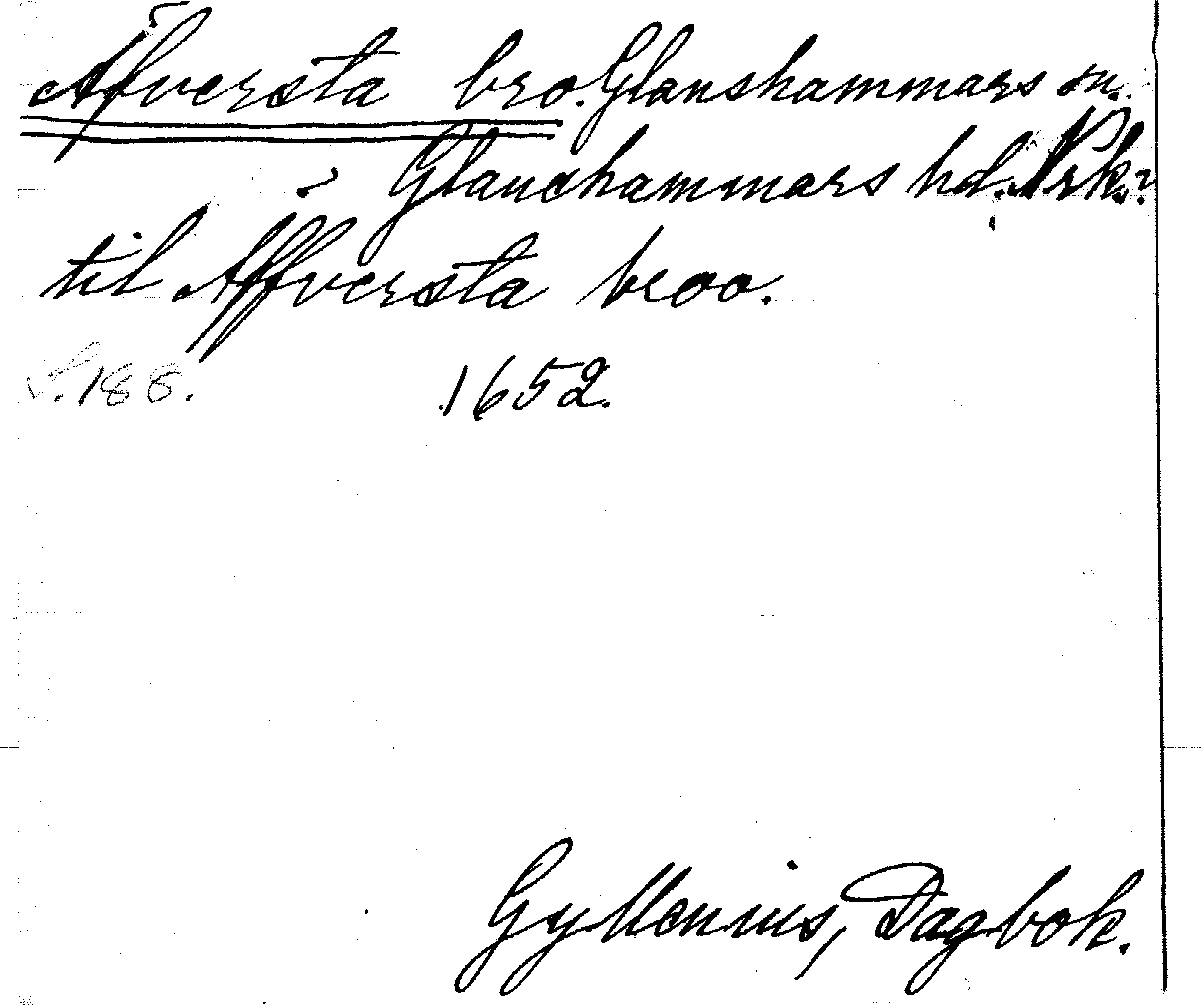 Afversta bro. Glanshammars sn.
Glanshammars hd. Nrk.
til Affversta broo.
S. 188. 1652.
Gyllenius, Dagbok.